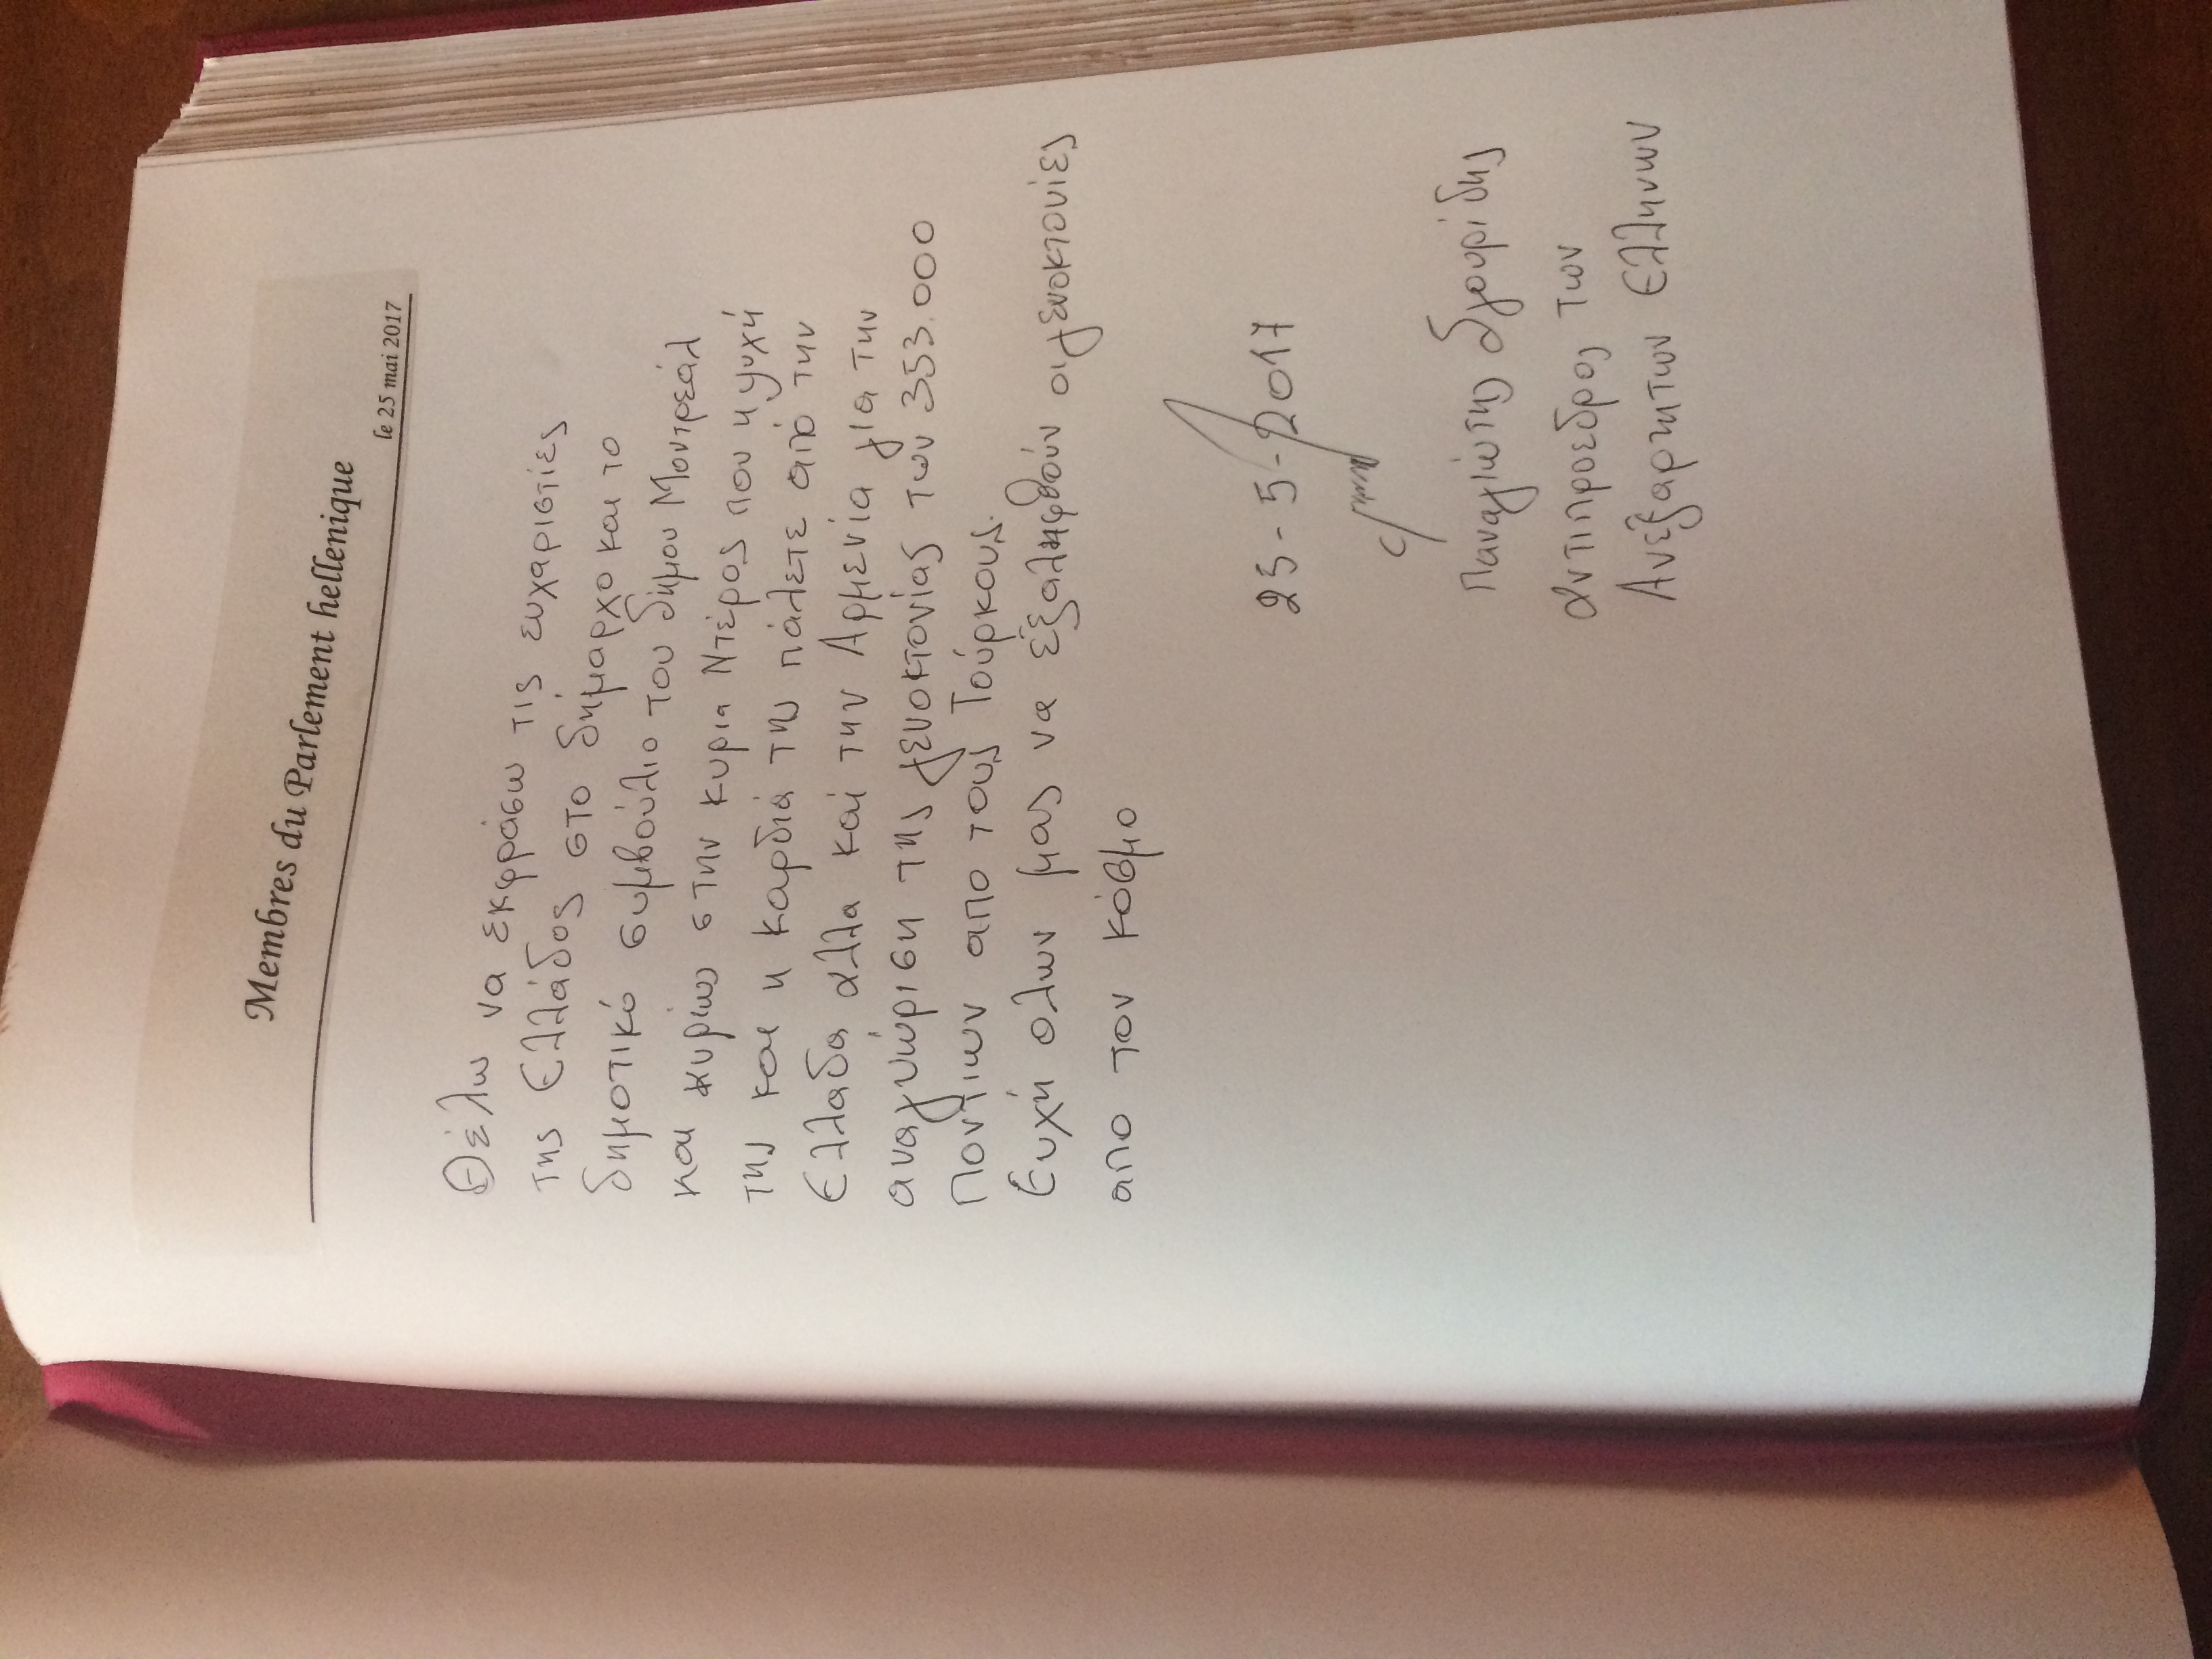 Membres du Parlement hellenique
le 25 mai 2017
Θέλω να εκφράσω τις ευχαριστίες
της Ελλάδος στο δήμαρχο και το
δημοτικό συμβούλιο του δήμου Μοντρεάλ
και κυρίως στην κυρια Ντέρος που η ψυχή
της και η καρδιά της πάλετε από την
Ελλαδα αλλα καί την Αρμενία για την
αναγνώριση της γενοκτονίας των 353.000
Ποντίων απο τους Τούρκους.
Ευχή ολων μας να εξαληφθούν οι γενοκτονίες
απο τον κόσμο
25-5-2017
Παναγιώτης Σγουρίδης
αντιπροεδρος των
Ανεξαρτητων Ελληνων